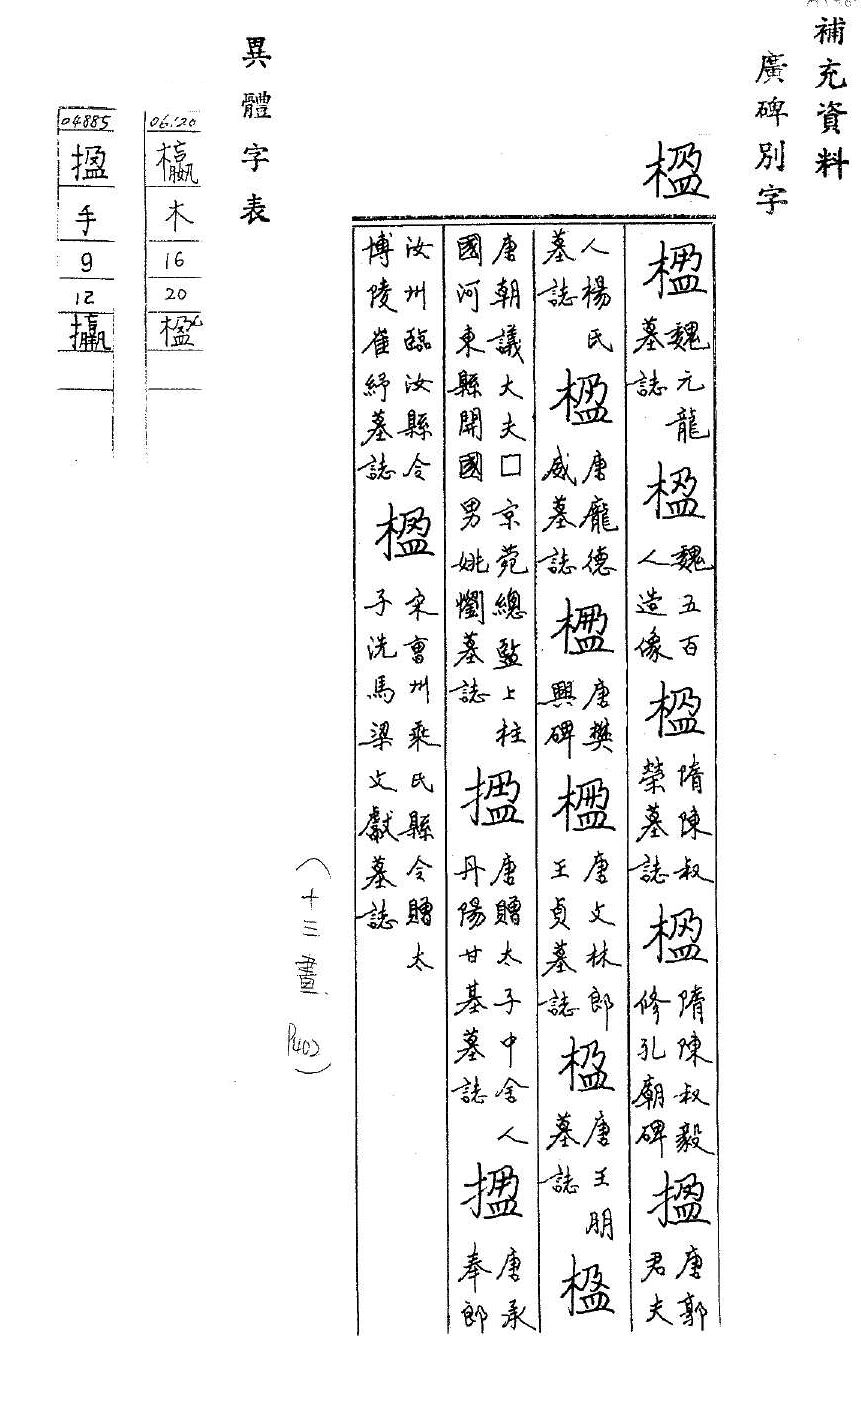 補充資料
廣碑別字
楹
楹 魏元龍墓誌 楹 魏五百人造像 楹 隋陳叔榮墓誌 楹 隋陳叔毅修孔廟碑 揾 唐郭君夫
人楊氏墓誌 楹 唐龐德威墓誌 楹 唐樊興碑 楹 唐文林郎王貞墓誌 楹 唐王朋墓誌 楹
唐朝議大夫□京苑總監上柱國河東縣開國男姚懰墓誌 揾 唐贈太子中舍人丹陽甘基墓誌 揾 唐承奉郎
汝州臨汝縣令博陵崔紓墓誌 楹 宋曹州乘氏縣令贈太子洗馬梁文獻墓誌
(十三畫 P402)
異體字表
木
16
20
楹
04885
手
9
12